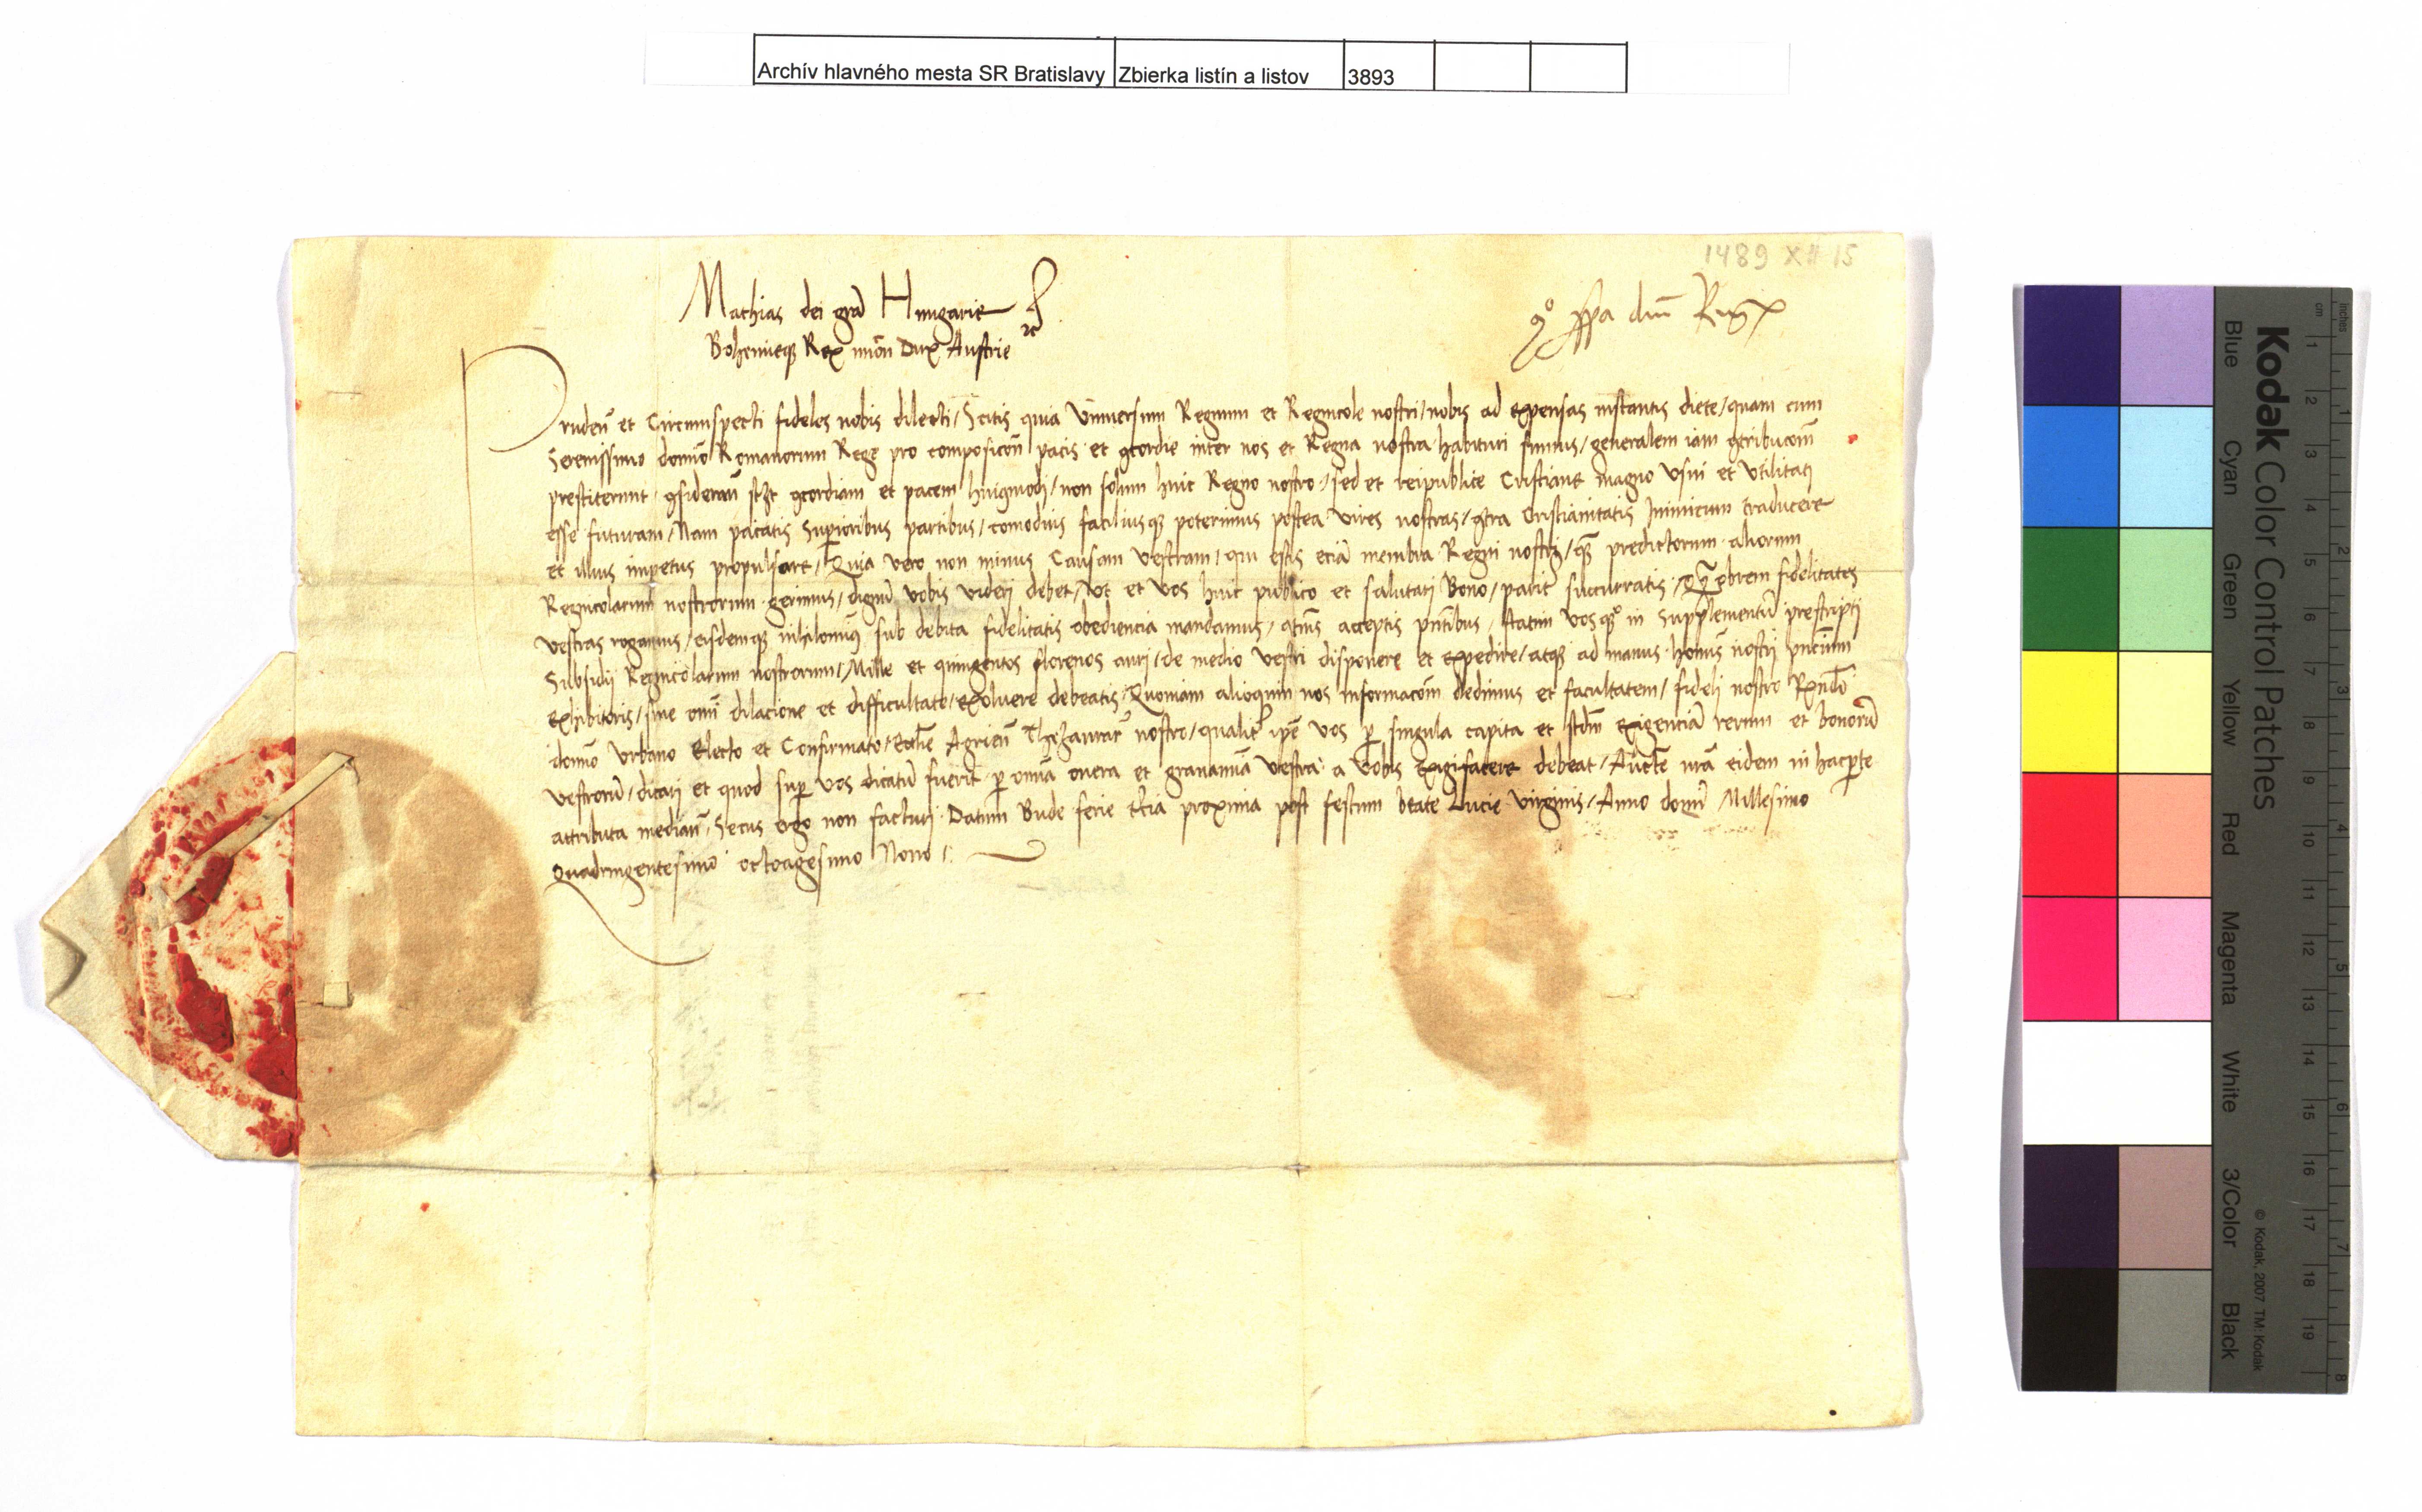 Archív hlavného mesta SR Bratislavy Zbierka listín a listov 3893
1489 XII 15
Mathias dei gra Hungarie
Bohemieque Rex nnon Dux Austrie
dni Regis
Pruden et Circumspecti fideles nobis dilecti / Scitis quia Universum Regnum et Regnicole nostri / nobis ad expensas instantis diete / quam cum
Serenissimo domino Romanorum Rege pro composicon pacis et concordie inter nos et Regna nostra habituri sumus / generalem iam contribucom
prestiterunt concordiam et pacem / non solum huic Regno nostro / sed et reipublice Cristiane magno usui et utilitati
esse futuram / Nam pacatis Superioribus partibus / comodius faciliusque poterimus postea vires nostras / contra Cristianitatis Inimicum traducere
et illius impetus propulsare / Quia vero non minus Causam vestram / qui estis eciam membra Regni nostri / predictorum aliorum
Regnicolarum nostrorum gerimus / dignum vobis videri debet / ut et vos huic publico et salutari Bono / pariter succurratis / fidelitates
vestras rogamus / eisdemque nihilominus sub debita fidelitatis obediencia mandamus / acceptis pntibus / statim vosquoque in Supplementum prescripti
Subsidii Regnicolarum nostrorum / Mille et quingentos florenos auri / de medio vestri disponere et expedire / atque ad manus hominis nostri pncium
exhibitoris / sine omni dilacione et difficultate / exolvere debeatis / Quoniam alioquin nos Informacom dedimus et facultatem / fideli nostro Rndo
domino Urbano Electo et Confirmato Agrien Thezaurar nostro / qualiter ipse vos per singula capita et exigenciam rerum et bonorum
vestrorum / dicari et quod super vos dicatum fuerit per omnia onera et gravamina vestra a vobis exigifacere debeat / eidem in hacparte
attributa median / Secus ergo non facturi Datum Bude ferie tercia proxima post festum beate Lucie virginis / Anno domini Millesimo
Quadringentesimo octoagesimo Nono
Kodak Color Control Patches
Blue Cyan Green Yellow Red Magenta White 3/Color Black
© Kodak, 2007 TM: Kodak
inches 1 2 3 4 5 6 7 8
cm 1 2 3 4 5 6 7 8 9 10 11 12 13 14 15 16 17 18 19